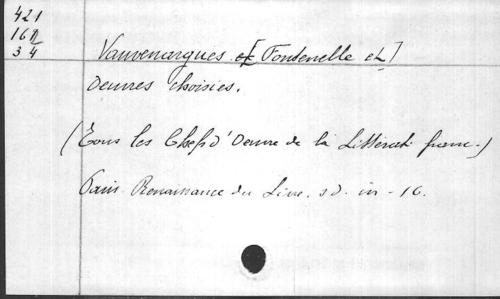 421
161
34
Vauvenargues et [Fontenelle et]
Oeuvres choisies.
(Tous les Chefs d'Oeuvre de la Littérat. franc.)
Paris. Renaissance du Livre. s.d. in-16.